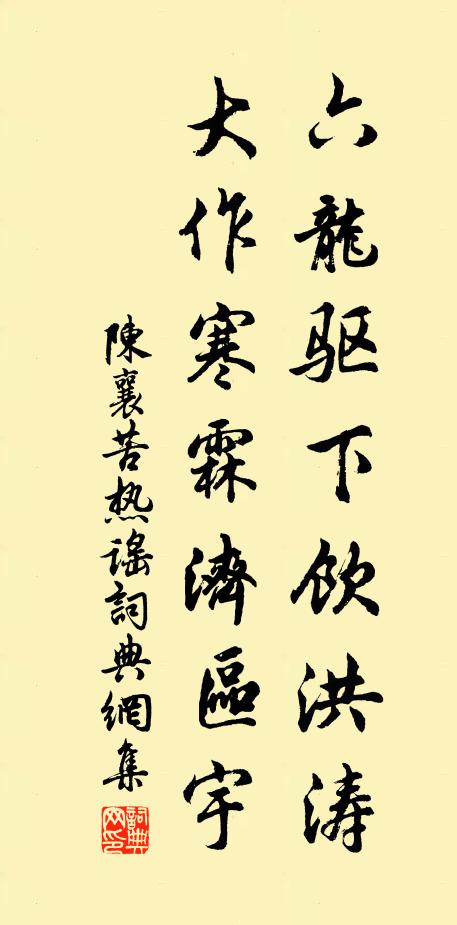 六龍驱下飲洪涛
大作寒霖濟區宇
陳襄苦热謡詞典網集
詞典网印